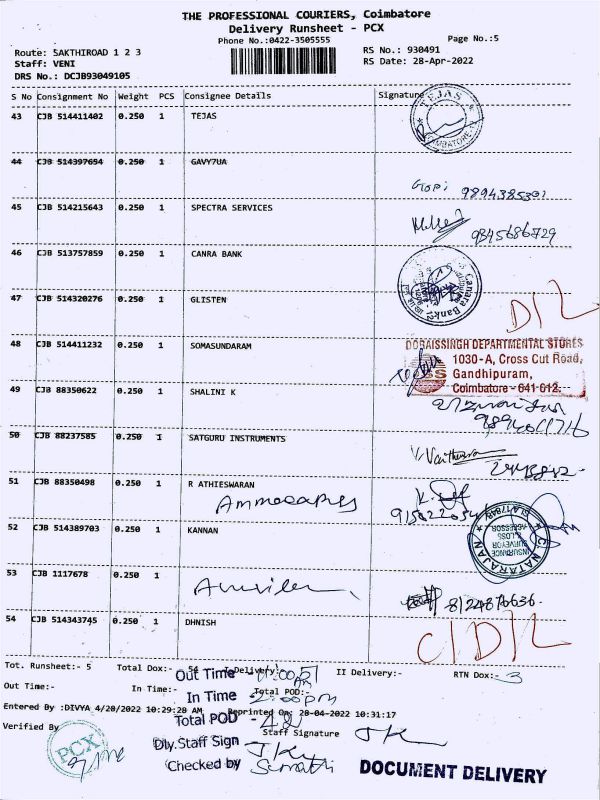 THE PROFESSIONAL COURIERS, Coimbatore
Delivery Runsheet - PCX
Phone No.:0422-3505555
Page No.:5
Route: SAKTHIROAD 1 2 3
RS No.: 930491
Staff: VENI
RS Date: 28-Apr-2022
DRS No.: DCJB93049105
S No Consignment No Weight PCS Consignee Details Signature
43 CJB 514411402 0.250 1 TEJAS
TEJAS
COIMBATORE
44 CJB 514397654 0.250 1 GAVY7UA
Gopi 9894385301
45 CJB 514215643 0.250 1 SPECTRA SERVICES
9345686729
46 CJB 513757859 0.250 1 CANRA BANK
Canara Bank
47 CJB 514320276 0.250 1 GLISTEN
D/L
48 CJB 514411232 0.250 1 SOMASUNDARAM
DORAISSINGH DEPARTMENTAL STORES
1030-A, Cross Cut Road,
Gandhipuram,
Coimbatore - 641 012.
49 CJB 88350622 0.250 1 SHALINI K
50 CJB 88237585 0.250 1 SATGURU INSTRUMENTS
51 CJB 88350498 0.250 1 R ATHIESWARAN
52 CJB 514389703 0.250 1 KANNAN
C. NATARAJAN
INSURANCE
SURVEYOR
& LOSS
ASSESSOR
53 CJB 1117678 0.250 1
8124876636.
54 CJB 514343745 0.250 1 DHNISH
C/D/L
Tot. Runsheet:- 5 Total Dox:- II Delivery:- RTN Dox:- 3
Out Time
Out Time:- In Time:- Total POD:-
In Time - 2:00pm
Entered By :DIVYA 4/28/2022 10:29:28 AM Reprinted On: 28-04-2022 10:31:17
Total POD
Verified By
Staff Signature
PCX
Dly.Staff Sign
Checked by
DOCUMENT DELIVERY